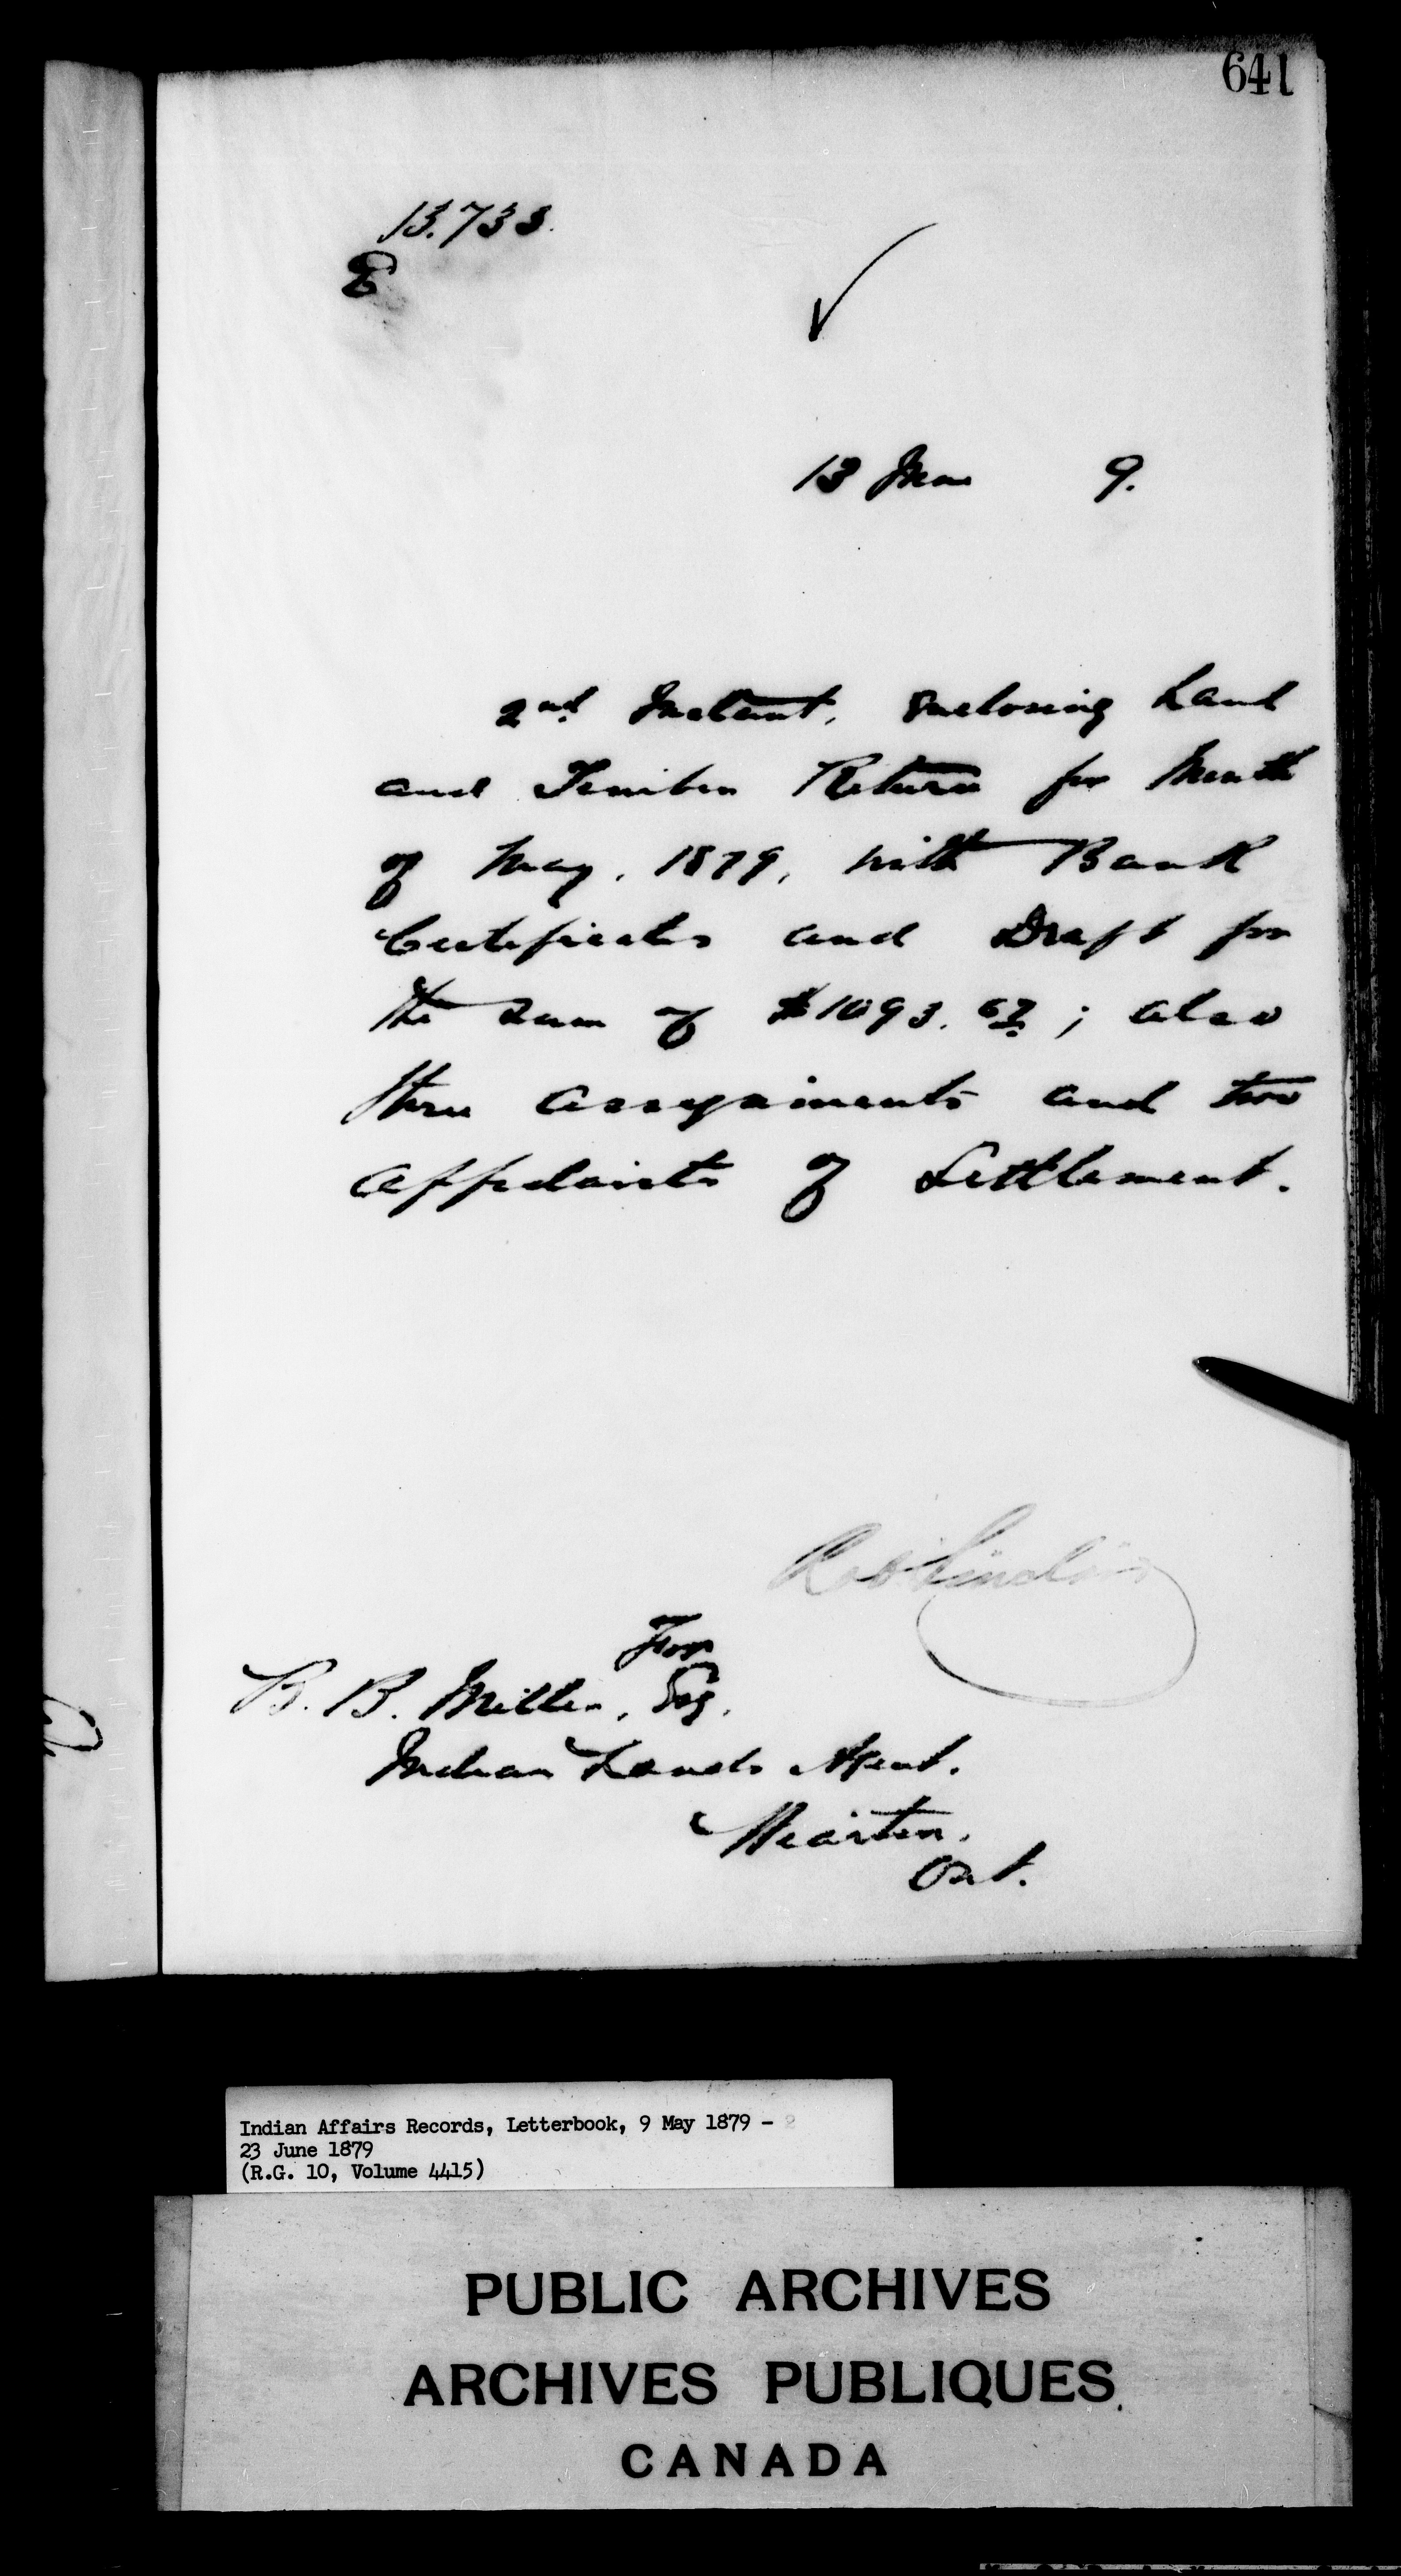 641
13.733.
E
13 June 9.
2nd Instant, enclosing Land
and Timber Return for Month
of May, 1879, with Bank
Certificates and Draft for
the sum of $1093.67; also
three assignments and two
affidavits of Settlement.
Rob Sinclair
For
B. B. Miller, Esq.
Indian Lands Agent.
Wiarton.
Ont.
Indian Affairs Records, Letterbook, 9 May 1879 -
23 June 1879
(R.G. 10, Volume 4415)
PUBLIC ARCHIVES
ARCHIVES PUBLIQUES
CANADA